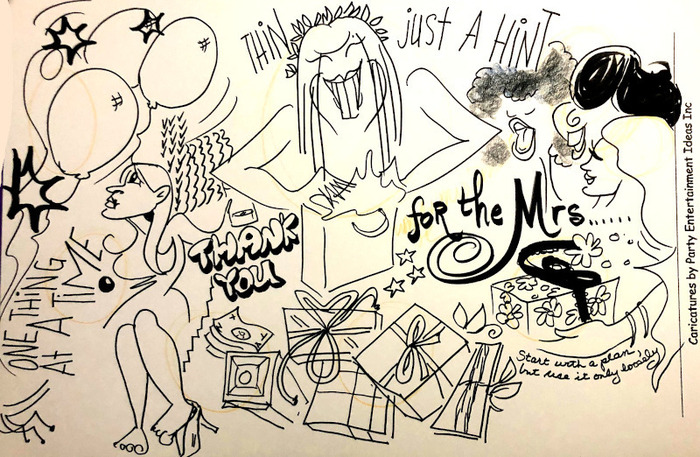 THIN
Just A HINT
for the Mrs......
THANK
YOU
ONE THING
At A TIME
Start with a plan,
but use it only loosely
Caricatures by Party Entertainment Ideas Inc